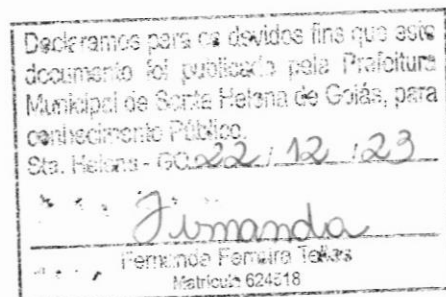 Declaramos para os devidos fins que este
documento foi publicado pela Prefeitura
Municipal de Santa Helena de Goiás, para
conhecimento Público.
Sta. Helena - GO 22 / 12 / 23
Fernanda
Fernanda Ferreira Telles
Matrícula 624518